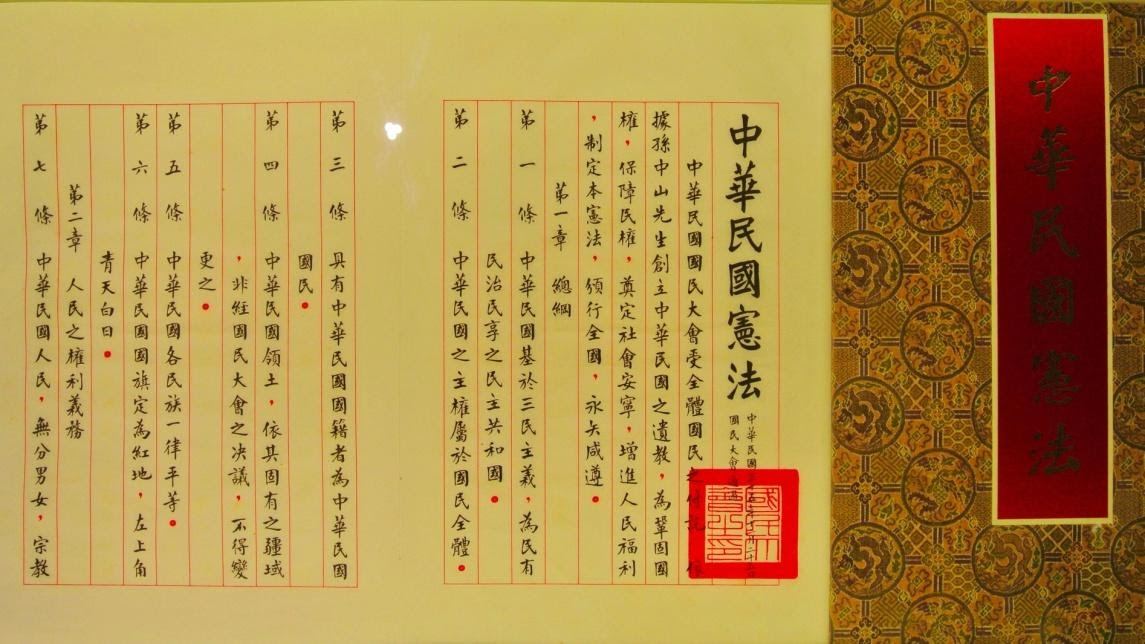 中華民國憲法
中華民國三十五年十二月二十五日
國民大會通過
中華民國憲法
中華民國國民大會受全體國民之付託 依
據孫中山先生創立中華民國之遺教，為鞏固國
權，保障民權，奠定社會安寧，增進人民福利
，制定本憲法，頒行全國，永矢咸遵。
第一章 總綱
第一條 中華民國基於三民主義，為民有
民治民享之民主共和國。
第二條 中華民國之主權屬於國民全體。
國民大
會之印
第三條 具有中華民國國籍者為中華民國
國民。
第四條 中華民國領土，依其固有之疆域
，非經國民大會之決議，不得變
更之。
第五條 中華民國各民族一律平等。
第六條 中華民國國旗定為紅地，左上角
青天白日。
第二章 人民之權利義務
第七條 中華民國人民，無分男女，宗教